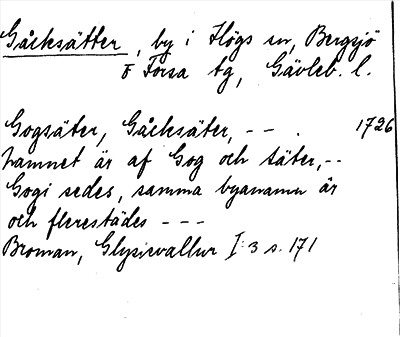 Gåcksätter, by i Högs sn, Bergsjö
o Forsa tg, Gävleb. l.
Gogsäter, Gåcksäter, -- . 1726
hamnet är af Gog och säter, --
Gogi sedes, samma byanamn är
och flerestädes ---
Broman, Glysisvallur I:3 s. 171